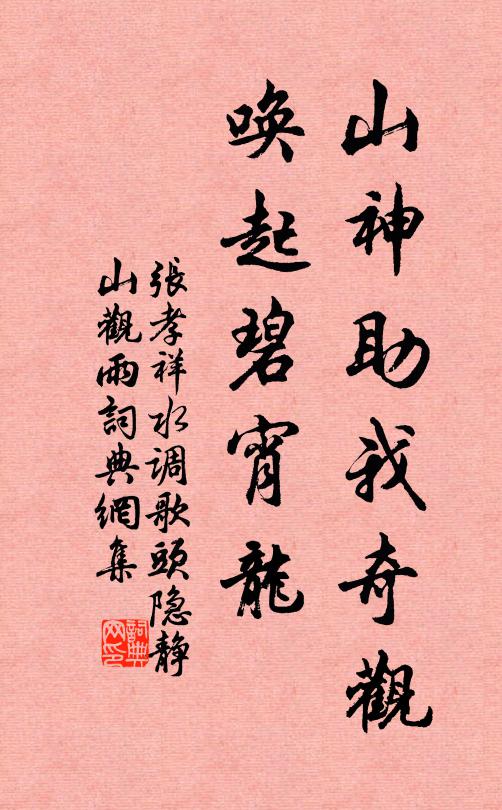 山神助我奇觀
唤起碧宵龍
張孝祥水调歌頭隐静
山觀雨詞典網集
詞典网印